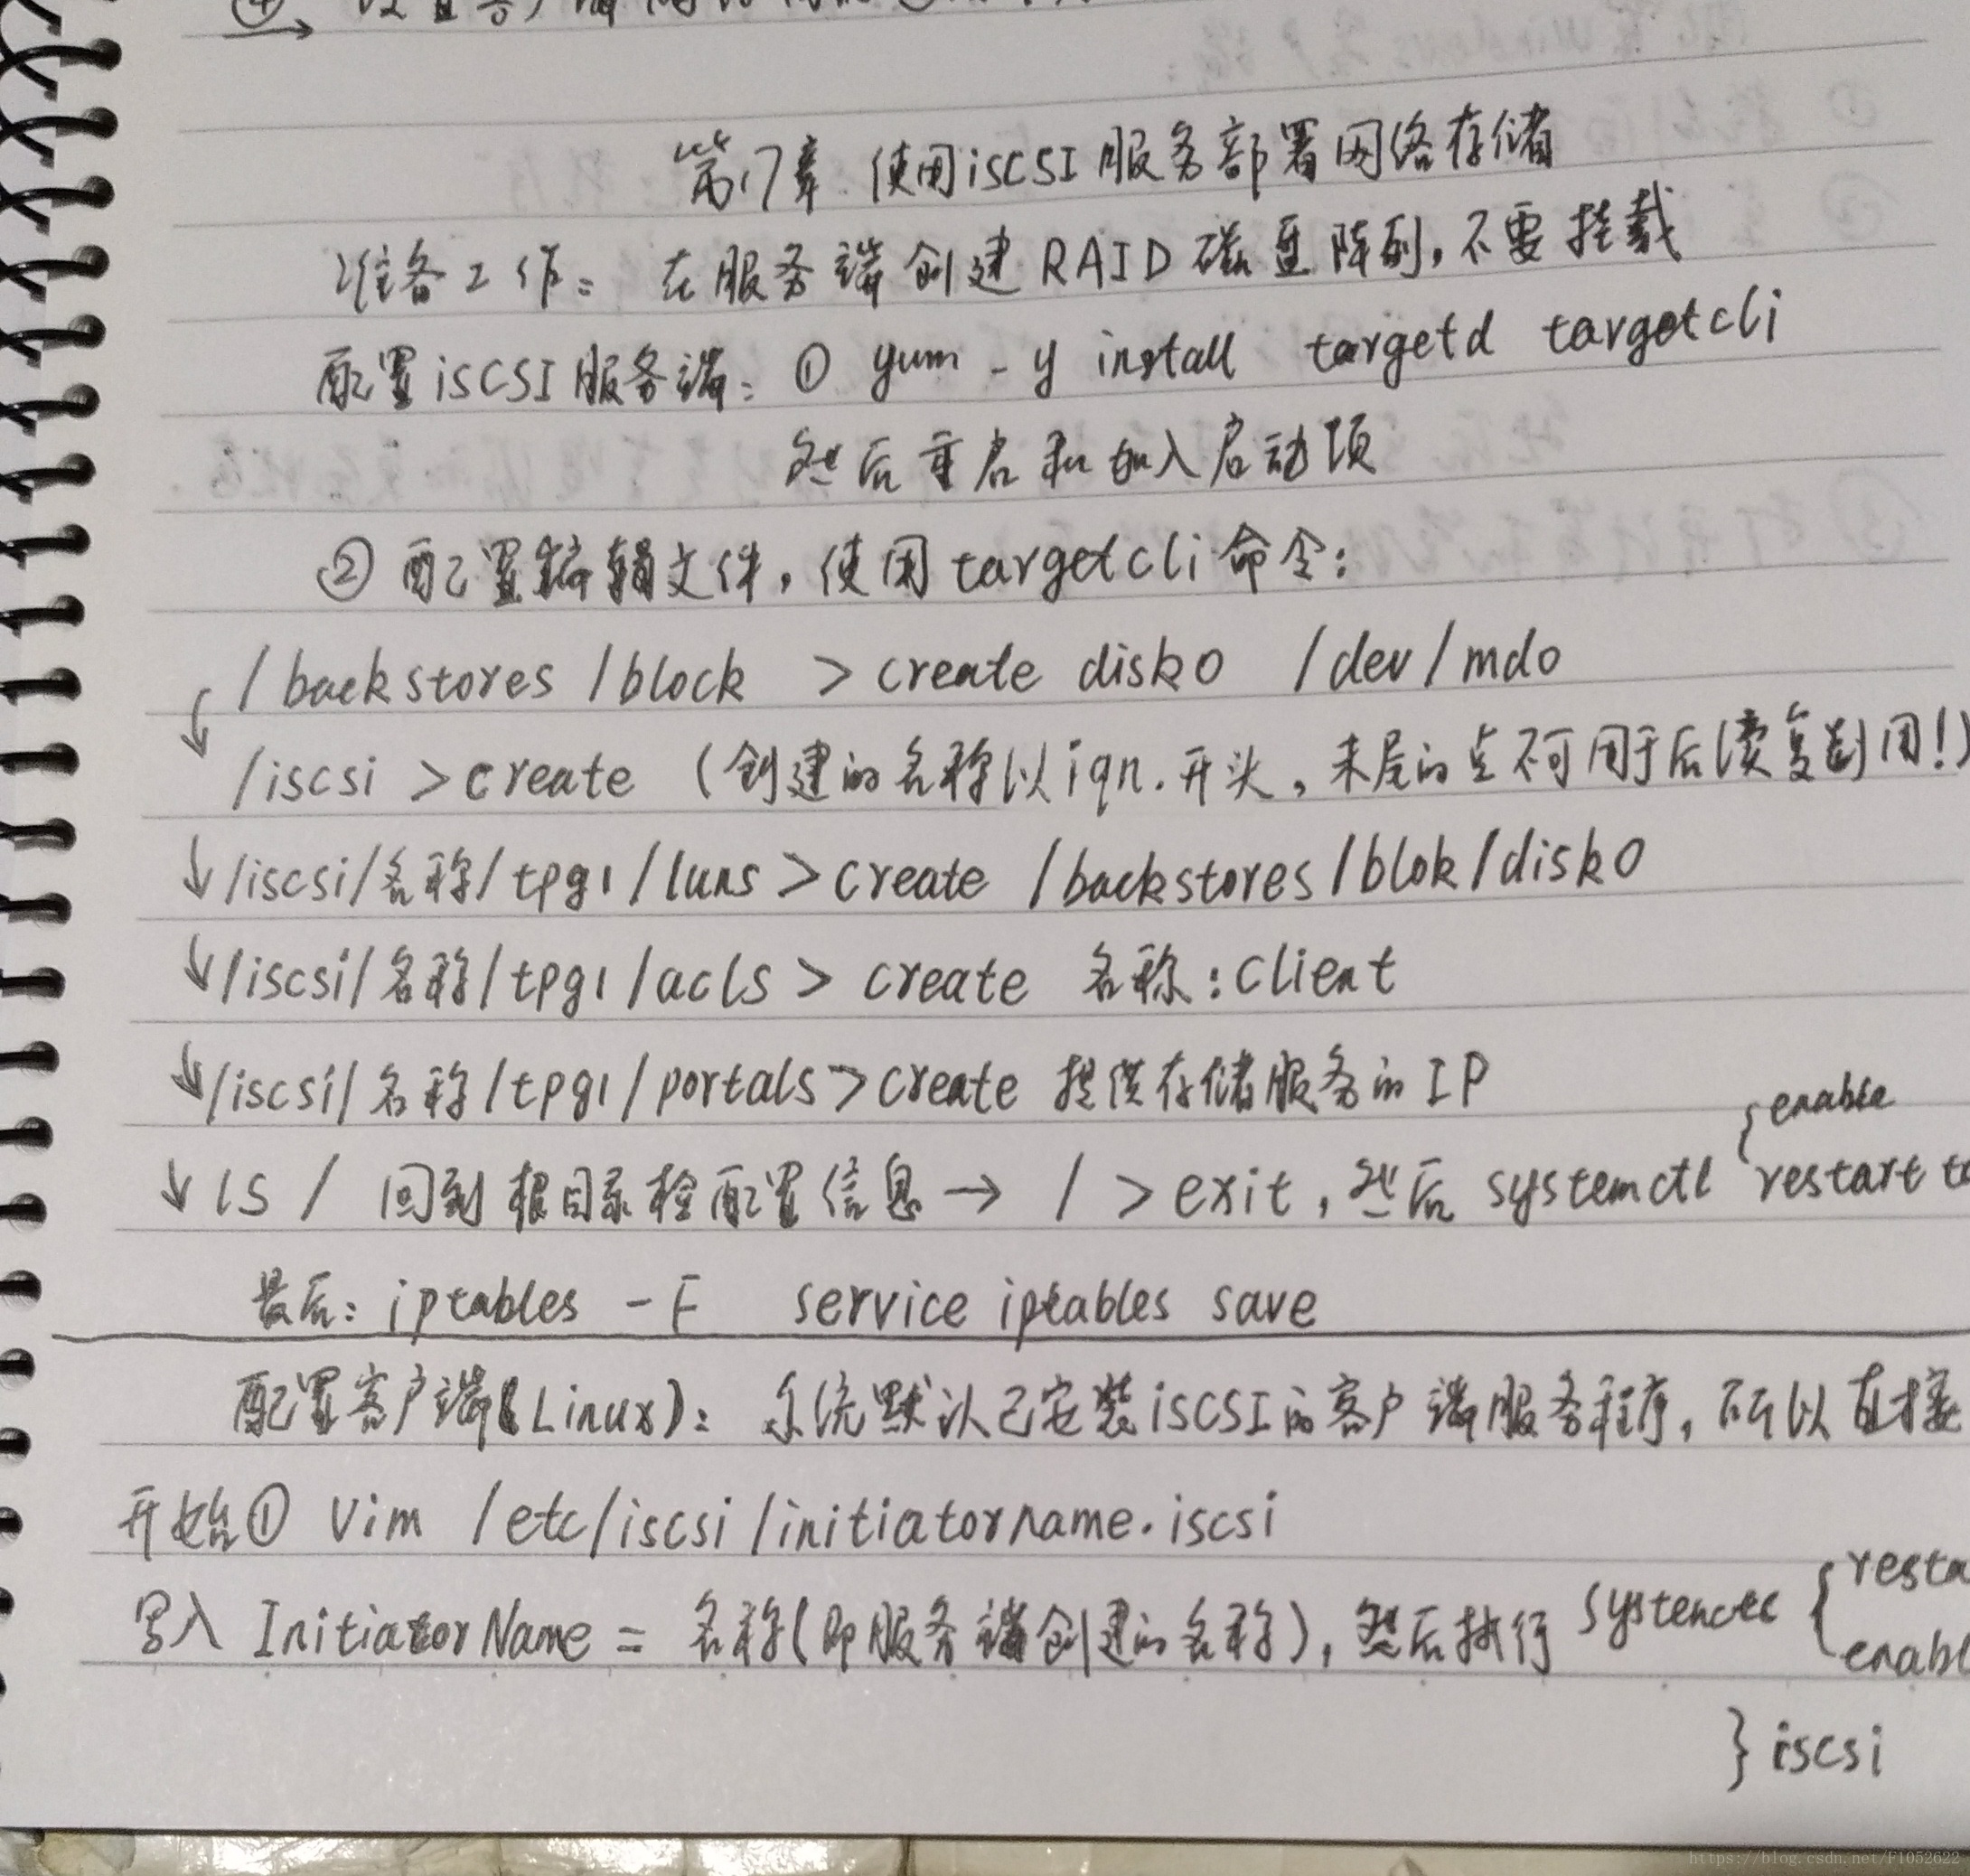 ④ 设置客户端
第17章 使用iSCSI服务部署网络存储
准备工作: 在服务端创建RAID磁盘阵列,不要挂载
配置iSCSI服务端: ① yum -y install targetd targetcli
然后重启和加入启动项
② 配置编辑文件,使用targetcli命令:
/backstores/block > create disk0 /dev/md0
↓ /iscsi > create (创建的名称以iqn.开头,末尾的点不可用于后续复制用!)
↓ /iscsi/名称/tpg1/luns > create /backstores/blok/disk0
↓ /iscsi/名称/tpg1/acls > create 名称:client
↓ /iscsi/名称/tpg1/portals > create 提供存储服务的IP
↓ ls / 回到根目录检配置信息 → / > exit,然后 systemctl { enable
restart t
最后: iptables -F service iptables save
配置客户端(Linux): 系统默认已安装iSCSI的客户端服务程序,所以直接
开始① vim /etc/iscsi/initiatorname.iscsi
写入 InitiatorName = 名称(即服务端创建的名称),然后执行 systemctl { resta
enabl
} iscsi
https://blog.csdn.net/F1052622